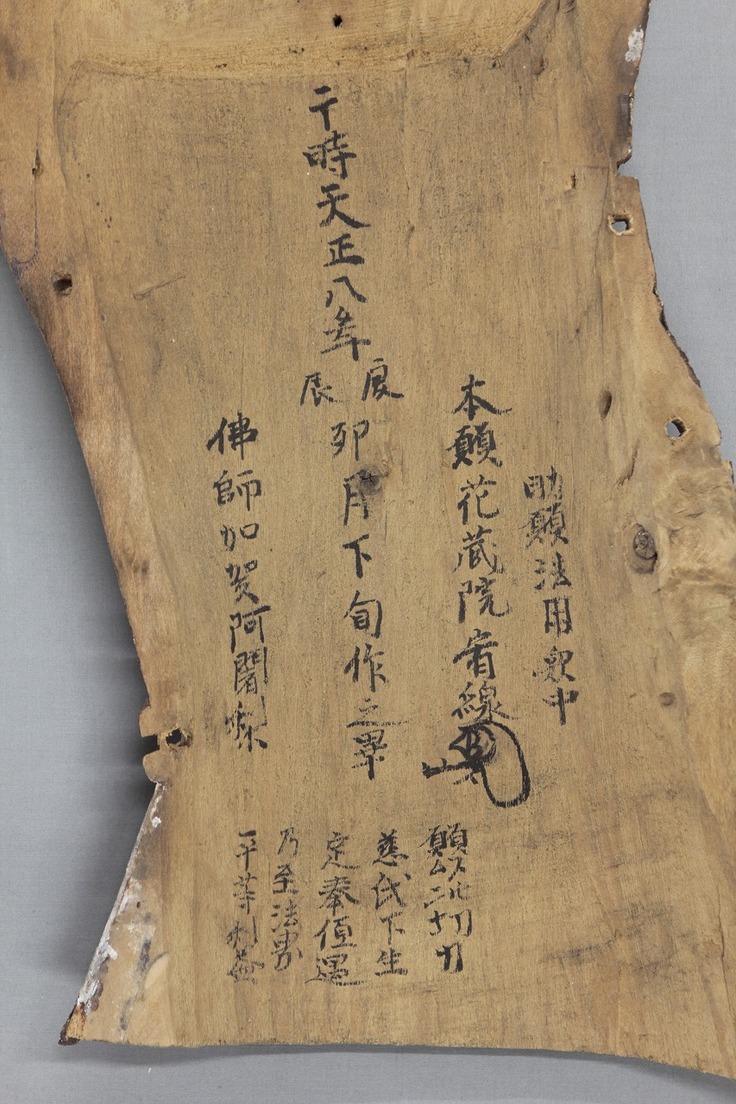 助願法用衆中
本願花蔵院宥線
于時天正八年庚辰卯月下旬作之畢
佛師加賀阿闍梨
願以此功力
慈氏下生
定奉値遇
乃至法界
平等利益